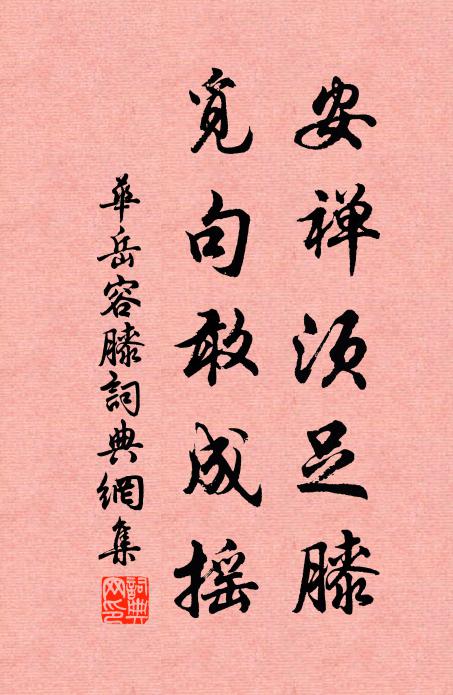 安禅须足膝
觅句敢成摇
華岳容膝詞典網集
詞典网印